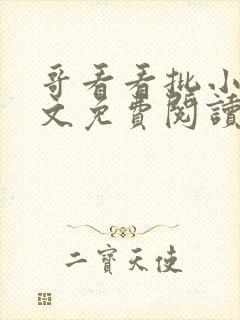 哥看看批小
文免費閱讀
二寶天使